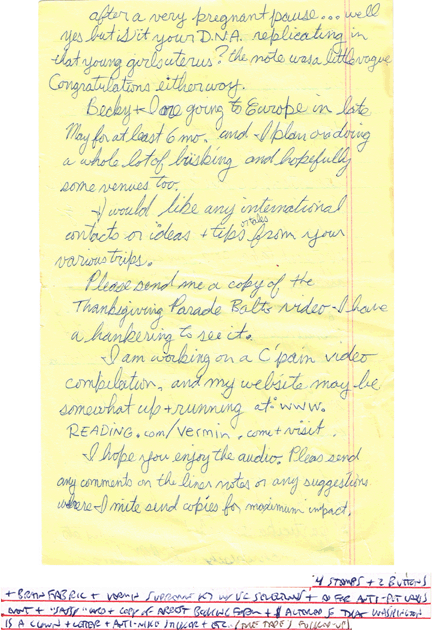 after a very pregnant pause... well
yes but is it your D.N.A. replicating in
that young girls uterus? the note was a little vague
Congratulations either way.
Becky + I are going to Europe in late
May for at least 6 mo. and I plan on doing
a whole lot of busking and hopefully
some venues too.
I would like any international
contacts or ideas + tips or tales from your
various trips.
Please send me a copy of the
Thanksgiving Parade Balto video - I have
a hankering to see it.
I am working on a C'pain video
compilation, and my website may be
somewhat up + running at - www.
READING.com/vermin. come + visit.
I hope you enjoy the audio. Pleas send
any comments on the linor notes or any suggestions
where I mite send copies for maximum impact.
4 STAMPS + 2 BUTTONS
+ BRAIN FABRIC + VERMIN SUPREME KY W/ VS FOR ANTI-
+ "SASSY" + COPY OF ARREST BOOKING FORM + ALTERED WASHINGTON
IS A CLOWN + LETTER + ANTI-NIKE STICKER + ETC. (FOLLOW-UP)